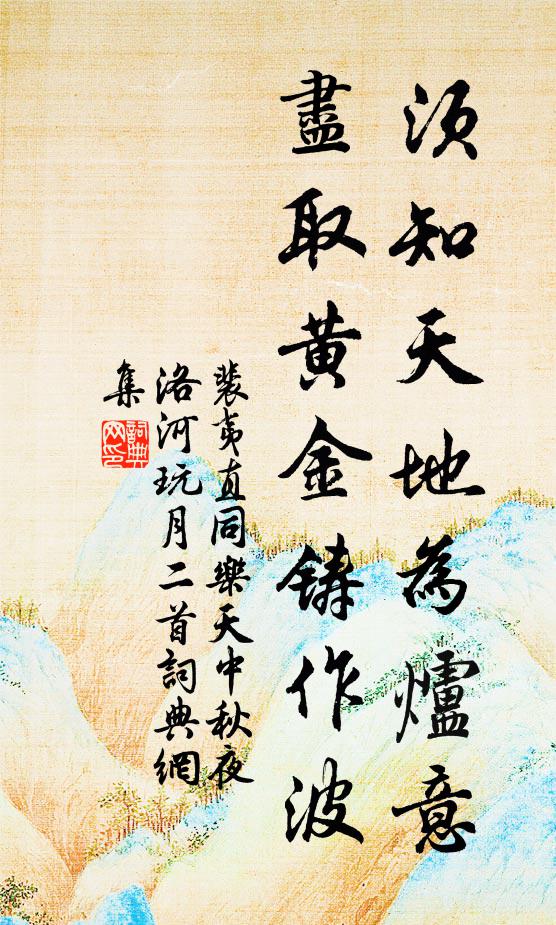 須知天地為爐意
盡取黃金鑄作波
裴夷直同樂天中秋夜
洛河玩月二首詞典網
集
詞典
网印